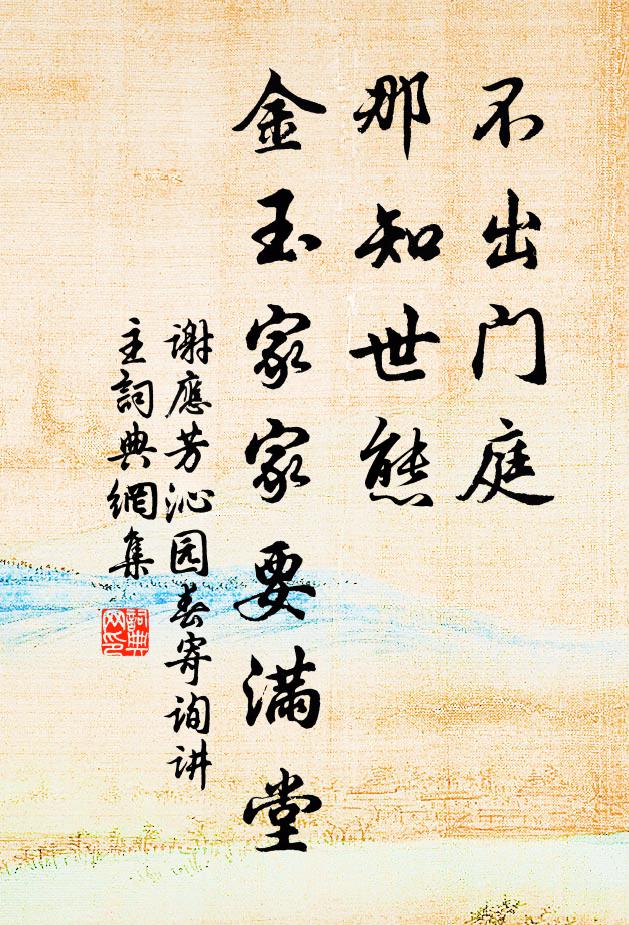 不出门庭
那知世態
金玉家家要满堂
谢應芳沁园春寄询讲
主詞典網集
詞典網印